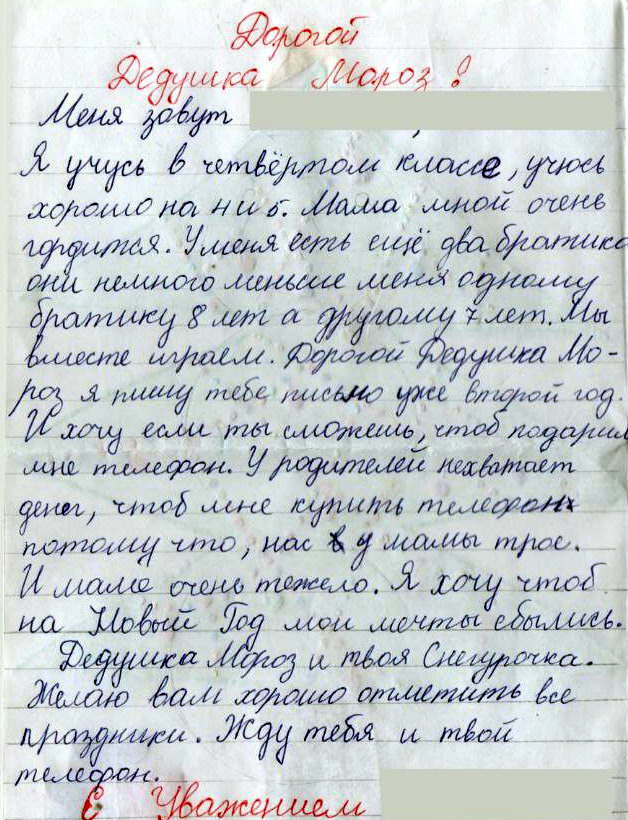 Дорогой
Дедушка Мороз!
Меня зовут
Я учусь в четвёртом классе, учюсь
хорошо на 4 и 5. Мама мной очень
гордится. У меня есть ещё два братика
они немного меньше меня одному
братику 8 лет а другому 7 лет. Мы
вместе играем. Дорогой Дедушка Мо-
роз я пишу тебе письмо уже второй год.
И хочу если ты сможешь, чтоб подарил
мне телефон. У родителей нехватает
денег, чтоб мне купить телефон
потому что, нас у мамы трое.
И маме очень тежело. Я хочу чтоб
на Новый Год мои мечты сбылись.
Дедушка Мороз и твоя Снегурочка.
Желаю вам хорошо отметить все
праздники. Жду тебя и твой
телефон.
С Уважением